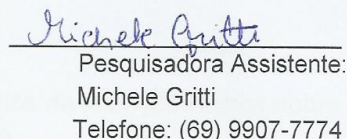 Michele Gritti
Pesquisadora Assistente:
Michele Gritti
Telefone: (69) 9907-7774